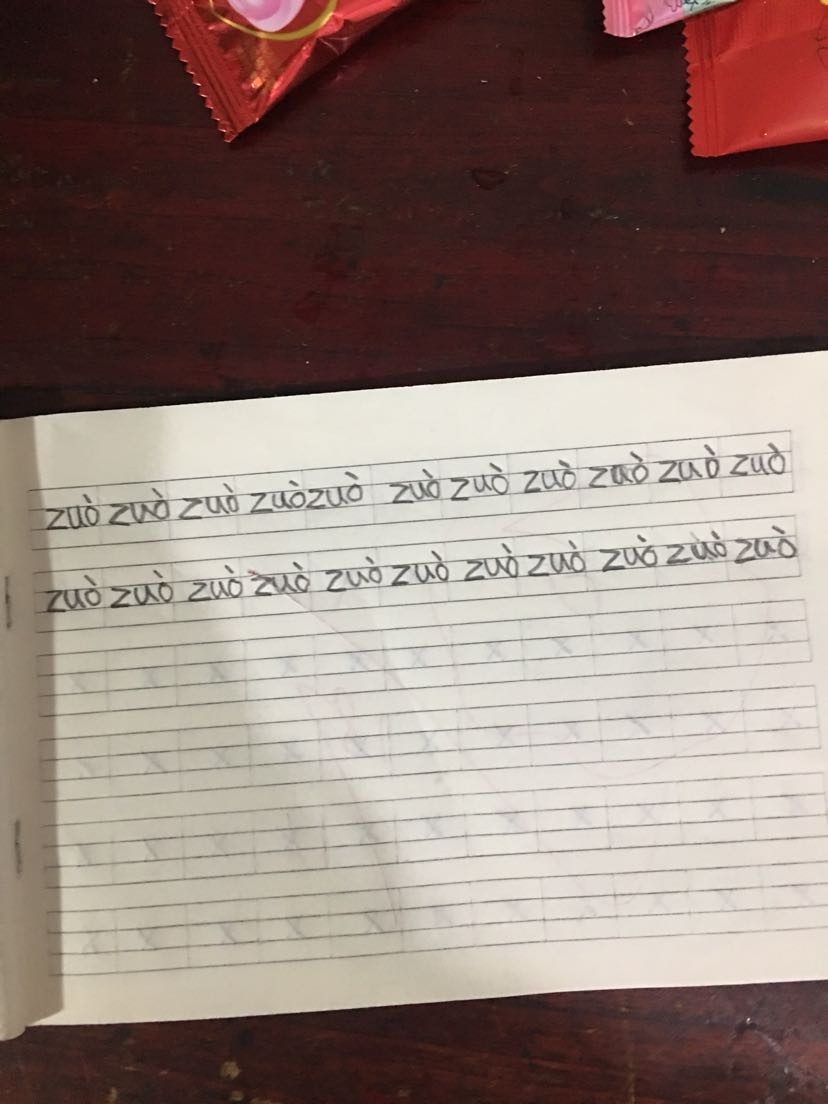 zuò zuò zuò zuò zuò zuò zuò zuò zuò zuò zuò
zuò zuò zuò zuò zuò zuò zuò zuò zuò zuò zuò